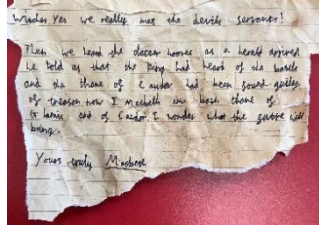 Yes we really met the devils servant!
Then we heard the hooves as a herald arrived
he told us that the King had heard of the battle
and the thane of Cawdor had been found guilty
of treason now I Macbeth am both thane of
Glamis and of Cawdor I wonder what the future will
bring.
Yours truly Macbeth